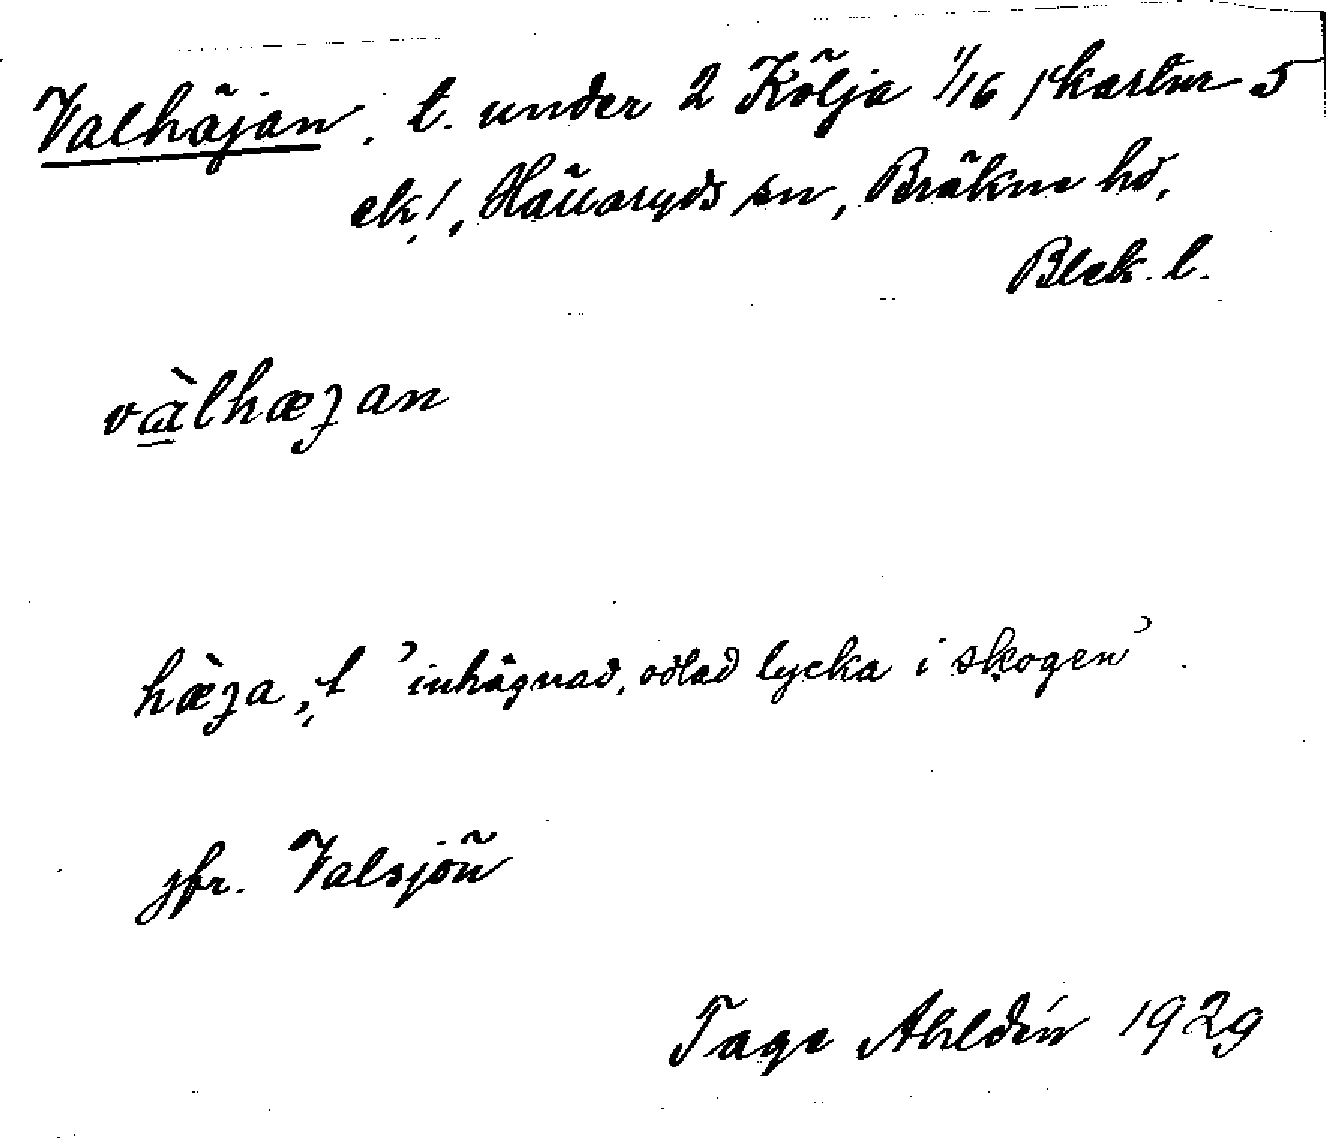 Valhäjan, t. under 2 Kölja 1/16 skattar 5
ek!, Hällaryds sn, Bräkne hd,
Blek. l.
vàlhæȷan
hæ̀ȷa, f ’inhägnad, odlad lycka i skogen’.
jfr. Valsjön
Tage Ahldin 1929